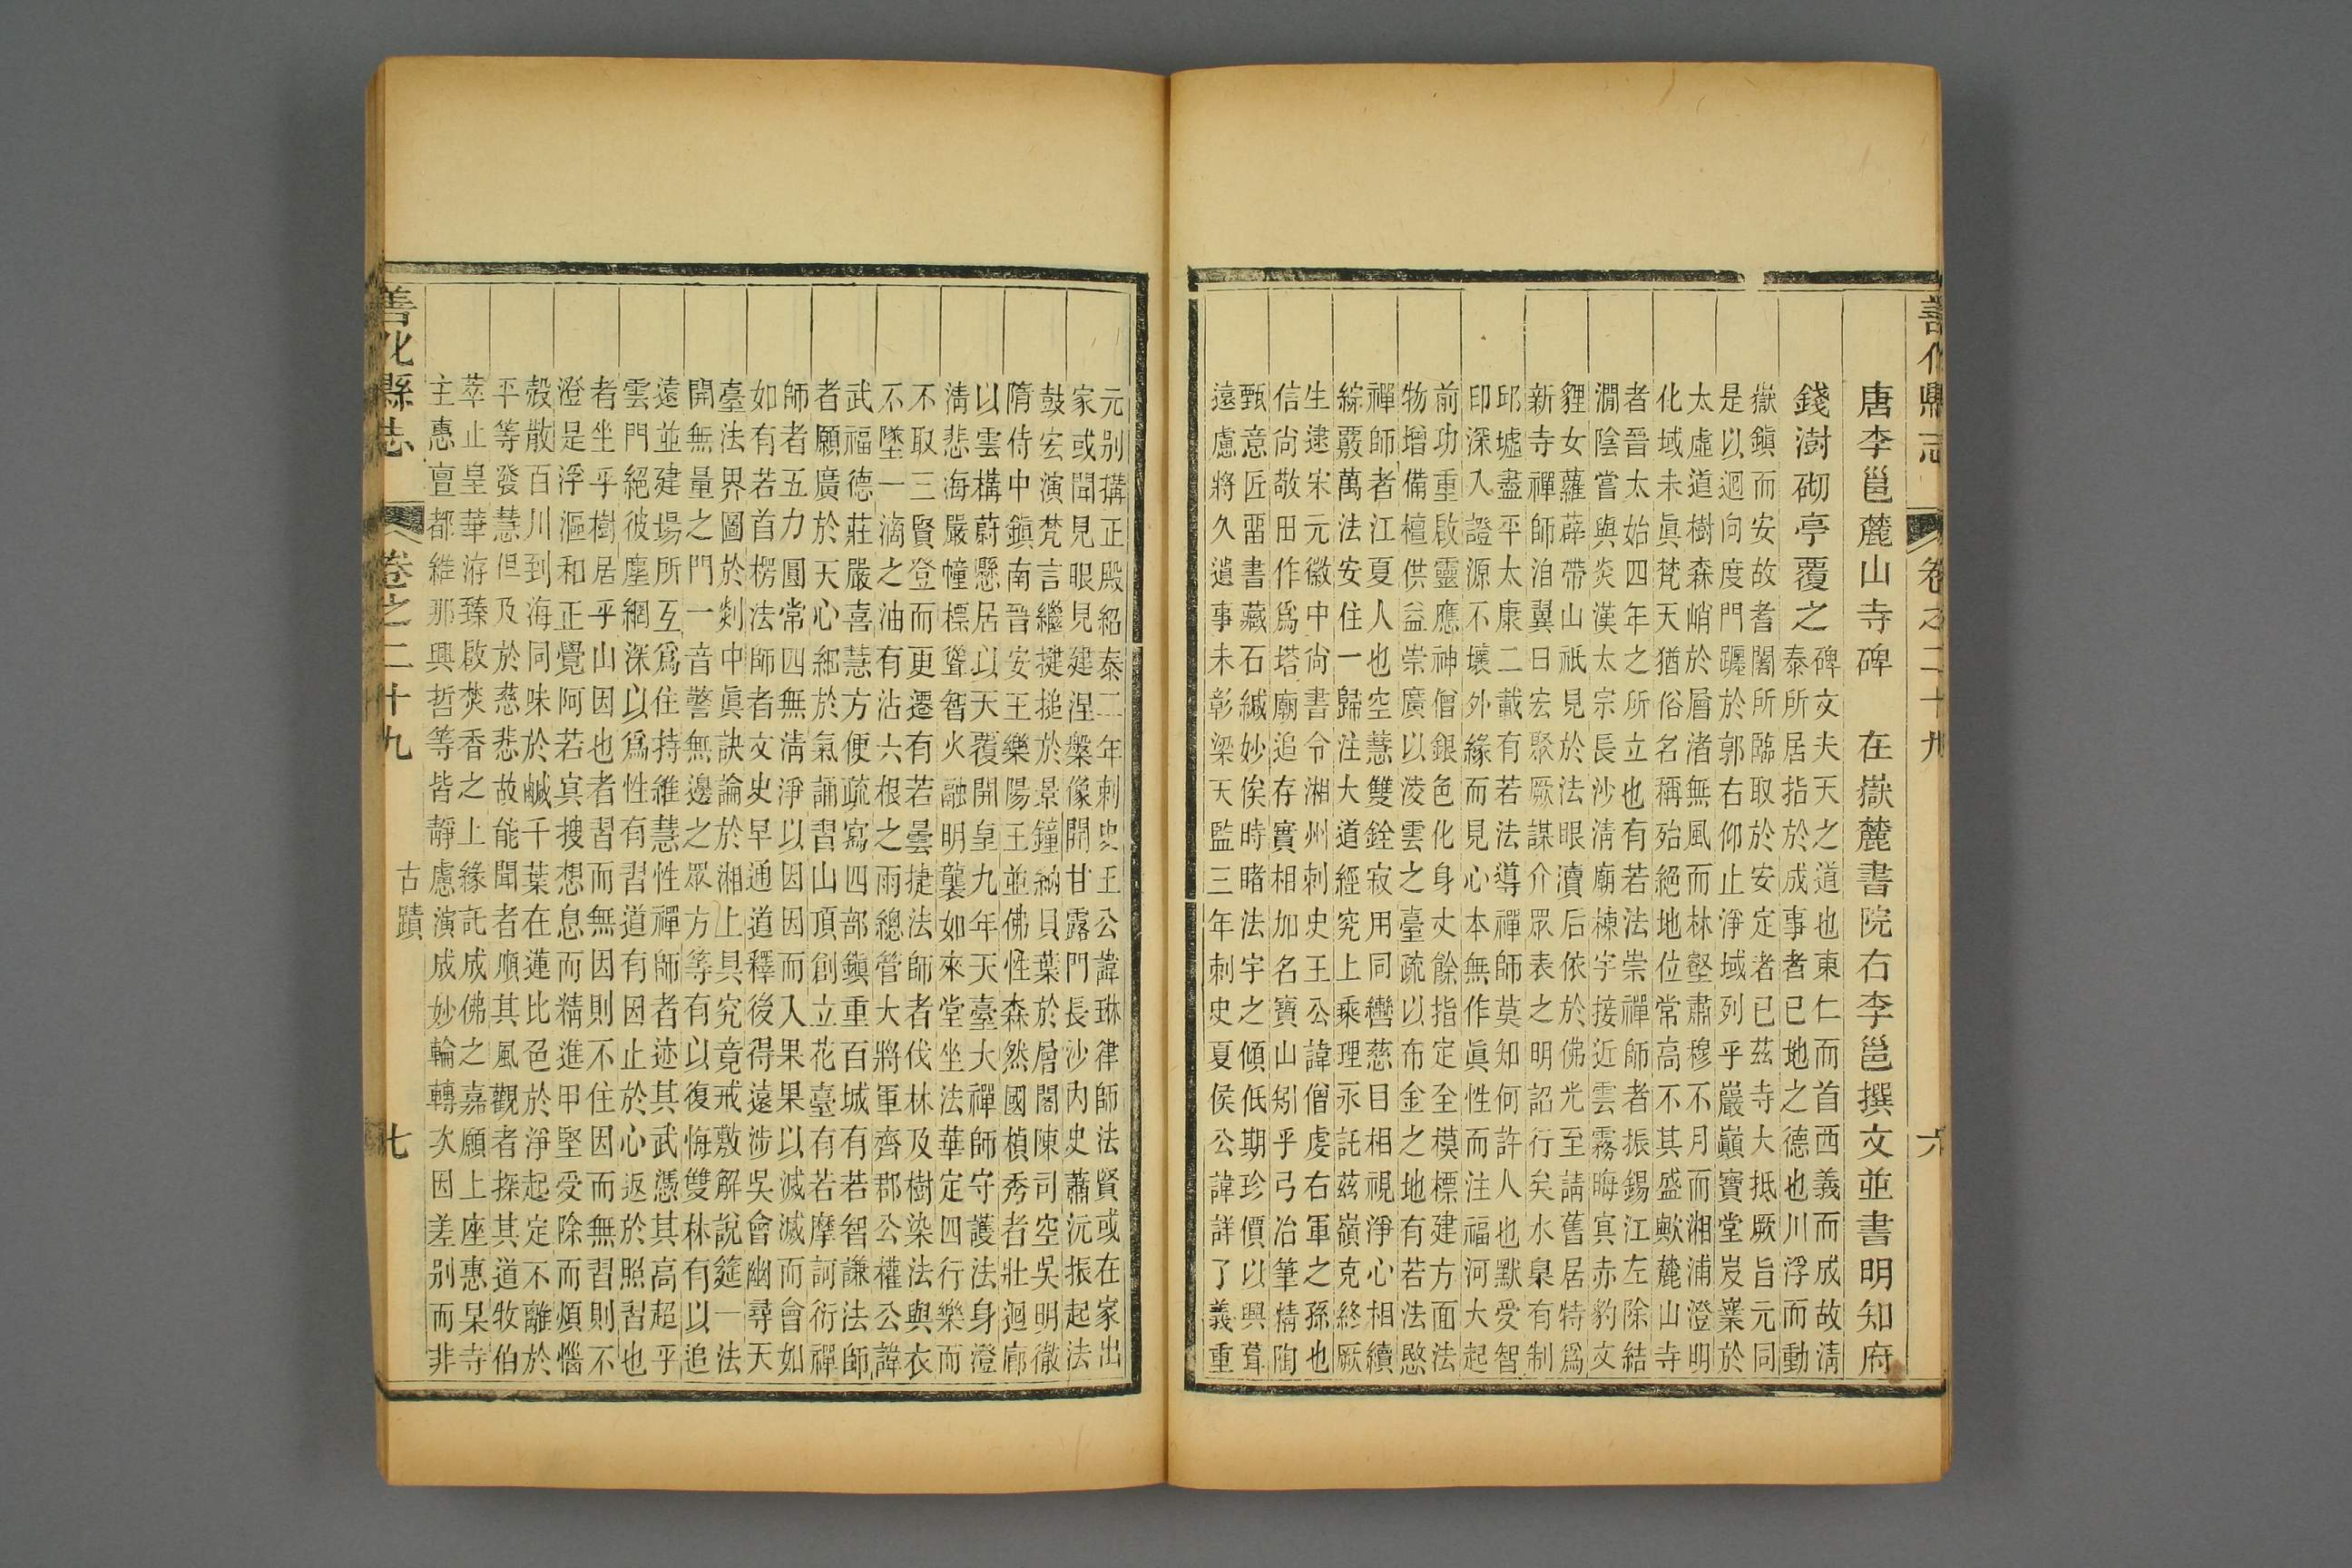 善化縣志 卷之二十九 六
唐李邕麓山寺碑 在嶽麓書院右李邕撰文並書明知府
錢澍砌亭覆之 碑文夫天之道也東仁而首西義而成故清
泰所居指於成事者已地之德也川浮而動
嶽鎮而安故耆闍所臨取於安定者已茲寺大抵厥旨元同
是以迴向度門躧於郭右仰止淨域列乎巖巔寶堂岌嶪於
太虛道樹森峭於層渚無風而林壑肅穆不月而湘浦澄明
化域未眞梵天猶俗名稱殆絕地位常高不其盛歟麓山寺
者晉太始四年之所立也有若法崇禪師者振錫江左除結
澗陰嘗與炎漢太宗長沙清廟棟宇接近雲霧晦冥赤豹文
貍女蘿薜帶山祇見於法眼瀆后依於佛光至請舊居特爲
新寺禪師洎翼日宏聚厥謀介眾表之明詔行矣水臬有制
邱墟盡平太康二載有若法導禪師莫知何許人也默受智
印深入證源不壞外緣而見心本無作眞性而注福河大起
前功重啟靈應神僧銀色化身丈餘指定全模標建方面法
物增備檀供益崇廣以淩雲之臺疏以布金之地有若法愍
禪師者江夏人也空慧雙銓寂用同轡慈目相視淨心相續
綜覈萬法安住一歸注大道經究上乘理永託茲嶺克終厥
生逮宋元徽中尚書令湘州刺史王公諱僧虔右軍之孫也
信尚敬田作爲塔廟追存實相加名寶山矧乎弓冶筆精陶
甄意匠畱書藏石緘妙俟時睹法宇之傾低期珍價以興葺
遠慮將久遺事未彰梁天監三年刺史夏侯公諱詳了義重
元別搆正殿紹泰二年刺史王公諱琳律師法賢或在家出
家或聞見眼見建涅槃像開甘露門長沙內史蕭沅振起法
鼓宏演梵言繼揵搥於景鐘納貝葉於層閣陳司空吳明徹
隋侍中鎮南晉安王樂陽王並佛性森然國楨秀者壯迴廊
以雲構蔚懸居以天覆開皇九年天臺大禪師守護法身澄
清悲海嚴幢標聳智火融明襲如來堂坐法華定四行樂而
不取三賢登而更遷有若曇捷法師者伐林及樹染法與衣
不墜一滴之油有沾六根之雨總管大將軍齊郡公權公諱
武福德莊嚴喜慧方便疏寫四部鎮重百城有若智謙法師
者願廣於天心細於氣誦習山頂創立花臺有若摩訶衍禪
師者五力圓常四無清淨以因因而入果果以滅滅而會如
如有若首楞法師者文史早通道釋後得遠涉吳會幽尋天
臺法界圖於剡中眞訣論於湘上具究竟戒敷解說筵一法
開無量之門一音警無邊之眾方等有以復悔雙林有以追
遠並建場所互爲住持維慧性禪師者迹其武憑其高超乎
雲門絕彼塵網深以爲性有習道有因止於心返於照習也
者坐乎樹居乎山因也者習而無因則不住因而無習則不
澄是浮漚和正覺阿若冥搜想息而精進甲堅受除而煩惱
殼散百川到海同味於鹹千葉在蓮比色於淨起定不離於
平等發慧但及於慈悲故能聞者順其風觀者探其道牧伯
萃止皇華洊臻啟焚香之上緣託成佛之嘉願上座惠杲寺
主惠亶都維那興哲等皆靜慮演成妙輪轉次因差別而非
善化縣志 卷之二十九 古蹟 七